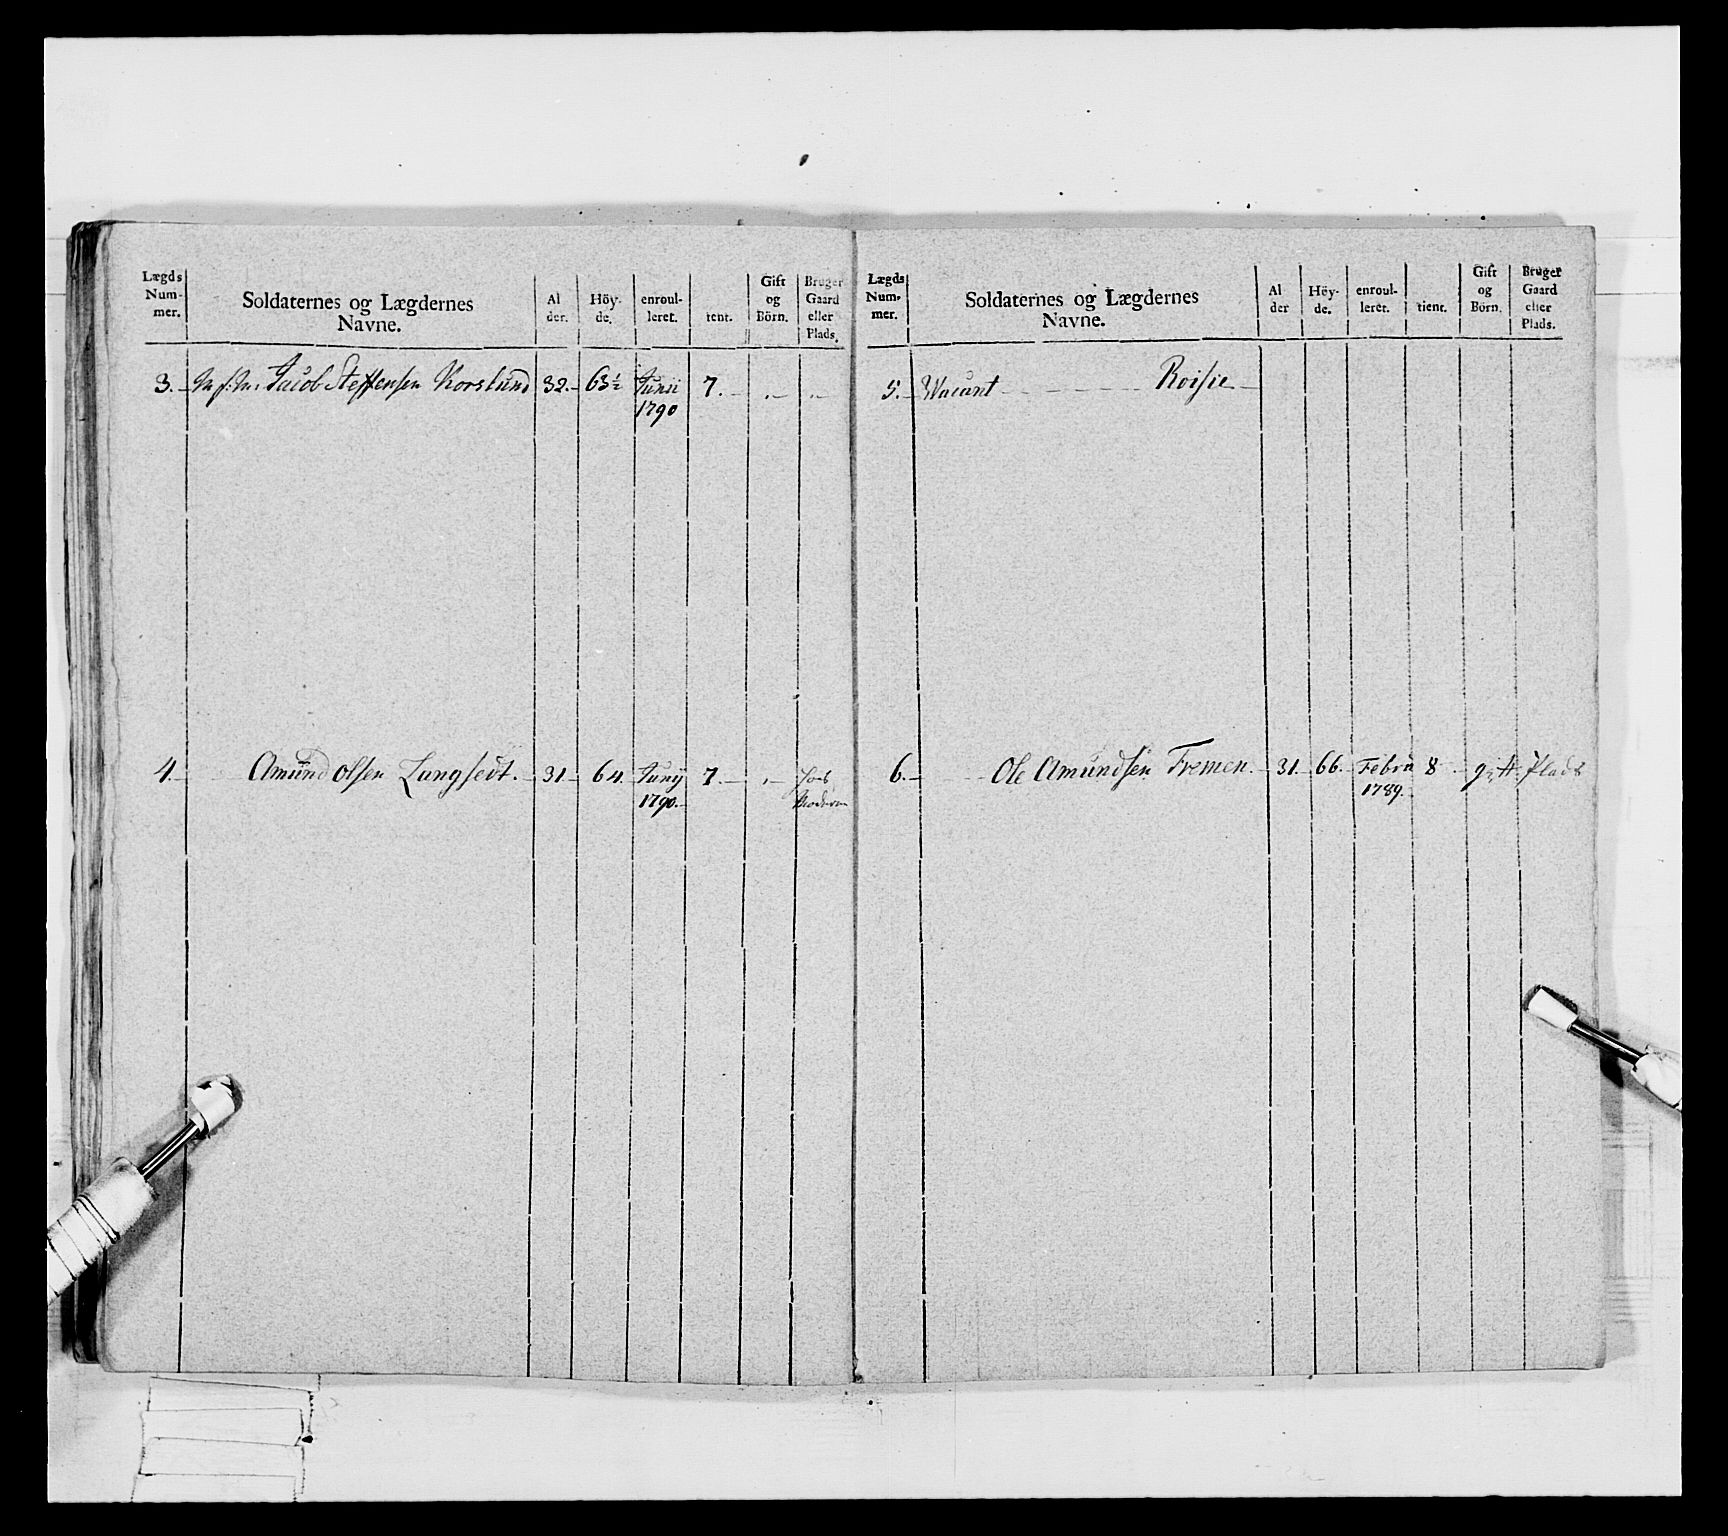 Lægds Num- mer.
Soldaternes og Lægdernes Navne.
Al der.
Höy- de.
enroul- leret.
tient.
Gift og Börn.
Bruger Gaard eller Plads.
3. Jacob Steffensen Korslund 32. 63½ Junii 7. „ „
1790
4. Amund Olsen Langset. 31 64. Junij 7. „ hos
1790. Moderen
Lægds Num- mer.
Soldaternes og Lægdernes Navne.
Al der
Höy- de.
enroul- leret.
tient.
Gift og Börn.
Bruger Gaard eller Plads.
5. Wacant Roisie
6. Ole Amundsen Fremen. 31. 66. Febru 8 Plads
1789.